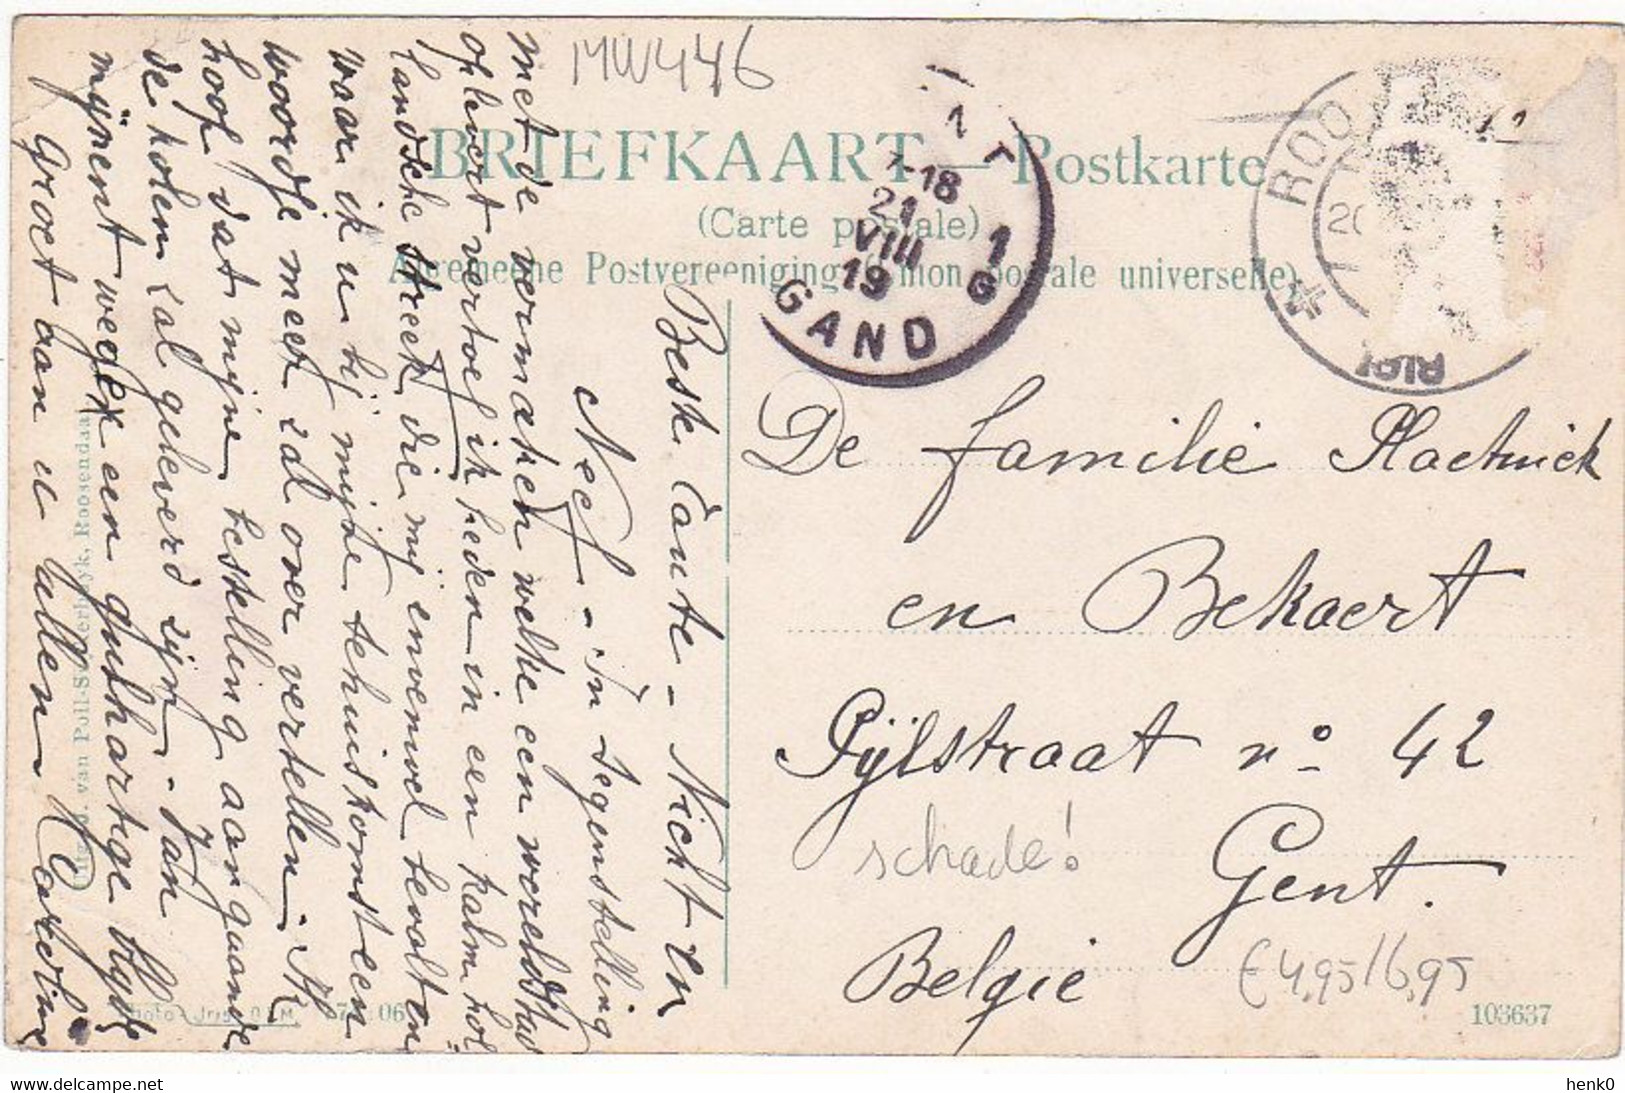 MW446
BRIEFKAART — Postkarte
(Carte postale)
Algemeene Postvereeniging mon postale universelle)
1-18
21
VIII
19
1
G
GAND
ROO
20
De familie Plaetinck
en Bekaert
Pijlstraat nº 42
Gent.
Belgie
schade!
€ 4,95/6,95
103637
Beste Tante - Nicht en
Neef - in tegenstelling
met de vermaken welke een wereldstad
oplevert vertoef ik heden in een kalm hol-
landsche streek die mij evenwel bevalt en
waar ik u bij mijne tehuiskomst een
woordje meer zal over vertellen. Ik
hoop dat mijne bestelling aangaande
de kolen zal geleverd zijn - Jan
mijnent wegen een guthartige
Groet aan u allen
van Poll-Suykerbuyk, Roosendaal